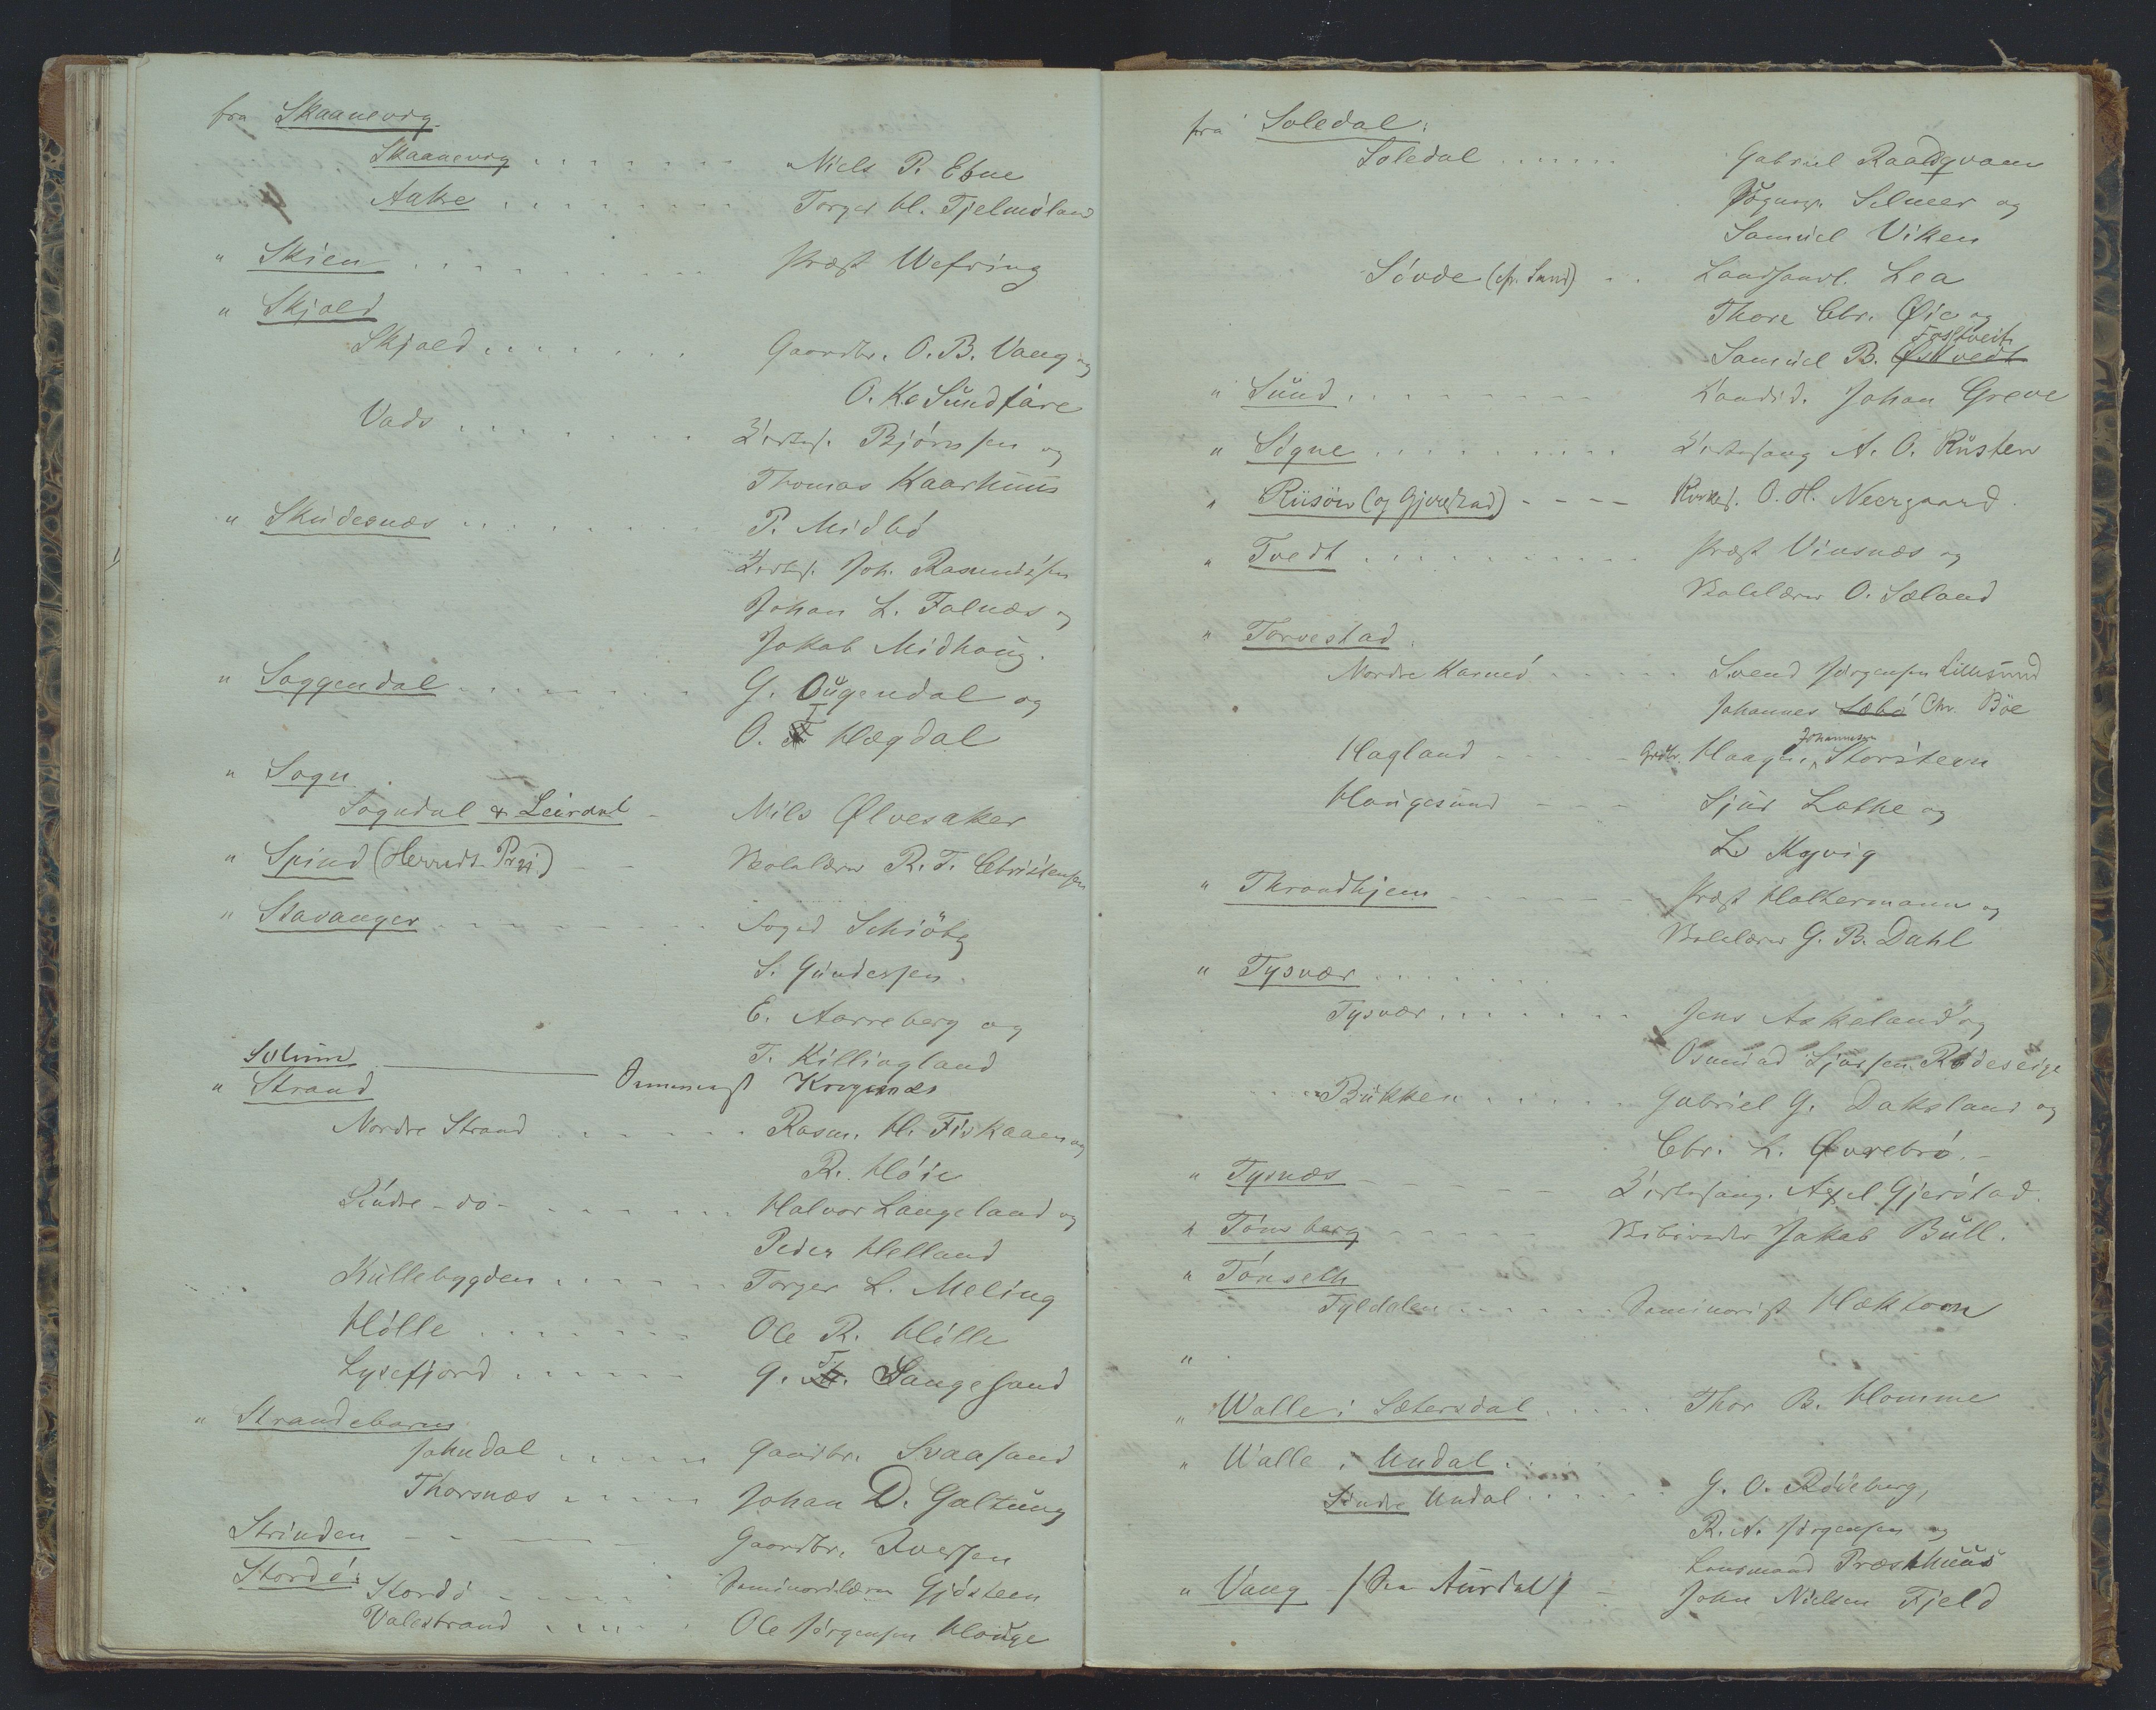 fra Skaanevig.
Skaanevig . . . . . . . Niels P. Ebne
Aake . . . . . . . . Torger H. Tjelmeland
" Skien . . . . . . . . . . Præst Wefring
" Skjold
Skjold . . . . . . . Gaardbr. O. B. Vaag og
O. K. Sundføre
Vads . . . . . . . . Kirkes. Bjørnsen og
Thomas Kaarhuus
" Skudesnæs . . . . . . . . P. Midbö
Kirkes. Joh. Rasmussen
Johan L. Falnæs og
Jakob Midhaug.
" Soggendal . . . . . . . . G. Ougendal og
O. T Hægdal
" Sogn.
Sogndal & Leirdal - Nils Ølvesaker
" Spind (Herredt-Præ.) - - Skolelærer R. T. Christensen
" Stavanger . . . . . . . . Foged Schiötz
S. Gundersen.
E. Aarreberg og
T. Killingland
Solum Krogenæs
" Strand
Nordre Strand . . . . . . Rasm. H. Fiskaaen og
R. Höie
Söndre - do - . . . . . . Halvor Langeland og
Peder Helland
Küllebygden . . . . . . Torger L. Meling
Hölle . . . . . . . Ole R. Hölle
Lysefjord . . . . . . G. T. Sangesand
" Strandebarm
Johndal . . . . . Gaardbr. Svaasand
Thorsnæs . . . . . Johan D. Galtung
Strinden - - - Gaardbr. Iversen
Stordö:
Stordö - - - - Seminarielærer Gjösteen
Valestrand . . . . . Ole Jörgensen Houge
fra Soledal:
Soledal . . . . . . . Gabriel Raadsqvam
Sogнepr. Selmer og
Samuel Viken
Sövde (Sand) . . Landhandl. Lea
Thore Chr. Øie og
Fosstveit
Samuel B. Østvedt
" Sund . . . . . . . . . Kandid. Johan Greve
" Sögne . . . . . . . . . Kirkesang A. O. Rusten
" Riisöer (og Gjerrestad) - - - - Kirkes. O. H. Neergaard.
" Tvedt . . . . . . . . . . Præst Vinsnæs og
Skolelærer O. Sæland
" Torvestad.
Nordre Karmö . . . . . Svend Jörgensen Lillesund
Johannes Læbö Chr. Böe
Hagland - - - - - Grdbr. Haagn. Johannesen Storesteen
Haugesund - - - Sjur Lothe og
L. Kyvig
" Throndhjem - - - - - - Præst Haltermann og
Skolelærer G. B. Dahl
" Tysvær . . . . . .
Tysvær . . . . . . . Jens Askeland og
Osmund Sjursen Rödeseige
Bukken . . . . . Gabriel G. Daksland og
Chr. L. Øvrebrö. -
" Tysnæs - - - - - Kirkesang. Axel Gjerstad.
" Tönsberg - - - - - Skibsreder Jakob Bull.
" Tönseth
Tyldalen . . . . . . Seminarist Hæktoen
" .
" Walle i Sætersdal . . . . . Thor B. Homme
" Walle i Undal . . . .
Söndre Undal . . . . . . G. O. Röiseberg,
R. A. Jörgensen og
Lensmand Præsthuus
" Vang / See Aurdal / - John Nielsen Fjeld